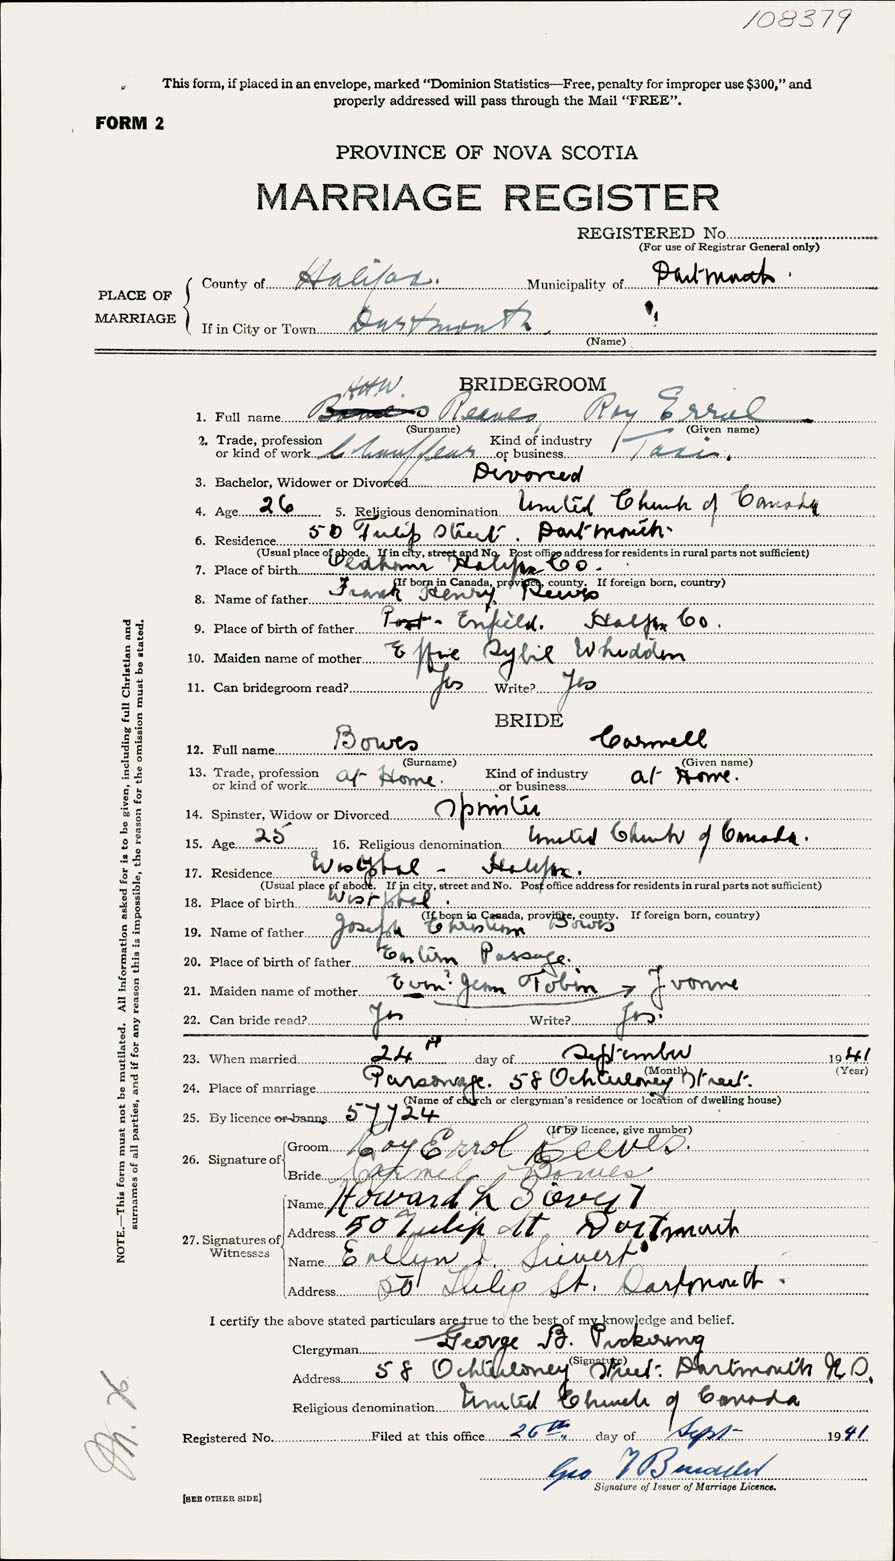 108379
This form, if placed in an envelope, marked "Dominion Statistics—Free, penalty for improper use $300," and
properly addressed will pass through the Mail "FREE".
FORM 2
PROVINCE OF NOVA SCOTIA
MARRIAGE REGISTER
REGISTERED No.
(For use of Registrar General only)
PLACE OF MARRIAGE
County of Halifax. Municipality of Dartmouth.
If in City or Town Dartmouth.
(Name)
BRIDEGROOM
1. Full name Reeves, Roy Errol
(Surname) (Given name)
2. Trade, profession or kind of work Chauffeur Kind of industry or business Taxi.
3. Bachelor, Widower or Divorced Divorced
4. Age 26 5. Religious denomination United Church of Canada
6. Residence 50 Tulip Street. Dartmouth.
(Usual place of abode. If in city, street and No. Post office address for residents in rural parts not sufficient)
7. Place of birth Oldham Halifax Co.
(If born in Canada, province, county. If foreign born, country)
8. Name of father Frank Henry Reeves
9. Place of birth of father Post - Enfield. Halifax Co.
10. Maiden name of mother Effie Sybil Whidden
11. Can bridegroom read? Yes Write? Yes
BRIDE
12. Full name Bowes Carmell
(Surname) (Given name)
13. Trade, profession or kind of work at Home. Kind of industry or business at Home.
14. Spinster, Widow or Divorced Spinster
15. Age 25 16. Religious denomination United Church of Canada.
17. Residence Westphal - Halifax.
(Usual place of abode. If in city, street and No. Post office address for residents in rural parts not sufficient)
18. Place of birth Westphal.
(If born in Canada, province, county. If foreign born, country)
19. Name of father Joseph Christian Bowes
20. Place of birth of father Eastern Passage.
21. Maiden name of mother Jean Tobin → Yvonne
22. Can bride read? Yes Write? Yes.
23. When married 24th day of September 1941
(Month) (Year)
24. Place of marriage Parsonage. 58 Ochterloney Street.
(Name of church or clergyman's residence or location of dwelling house)
25. By licence or banns 57724
(If by licence, give number)
26. Signature of
Groom Roy Errol Reeves.
Bride Carmel Bowes
27. Signatures of Witnesses
Name Howard L Sievert
Address 50 Tulip St Dartmouth
Name Evelyn I. Sievert
Address 50 Tulip St. Dartmouth.
I certify the above stated particulars are true to the best of my knowledge and belief.
Clergyman George B. Pickering
(Signature)
Address 58 Ochterloney Street. Dartmouth N.S.
Religious denomination United Church of Canada
Registered No. Filed at this office 26th day of Sept 1941
Geo
Signature of Issuer of Marriage Licence.
[SEE OTHER SIDE]
NOTE.—This form must not be mutilated. All information asked for is to be given, including full Christian and
surnames of all parties, and if for any reason this is impossible, the reason for the omission must be stated.